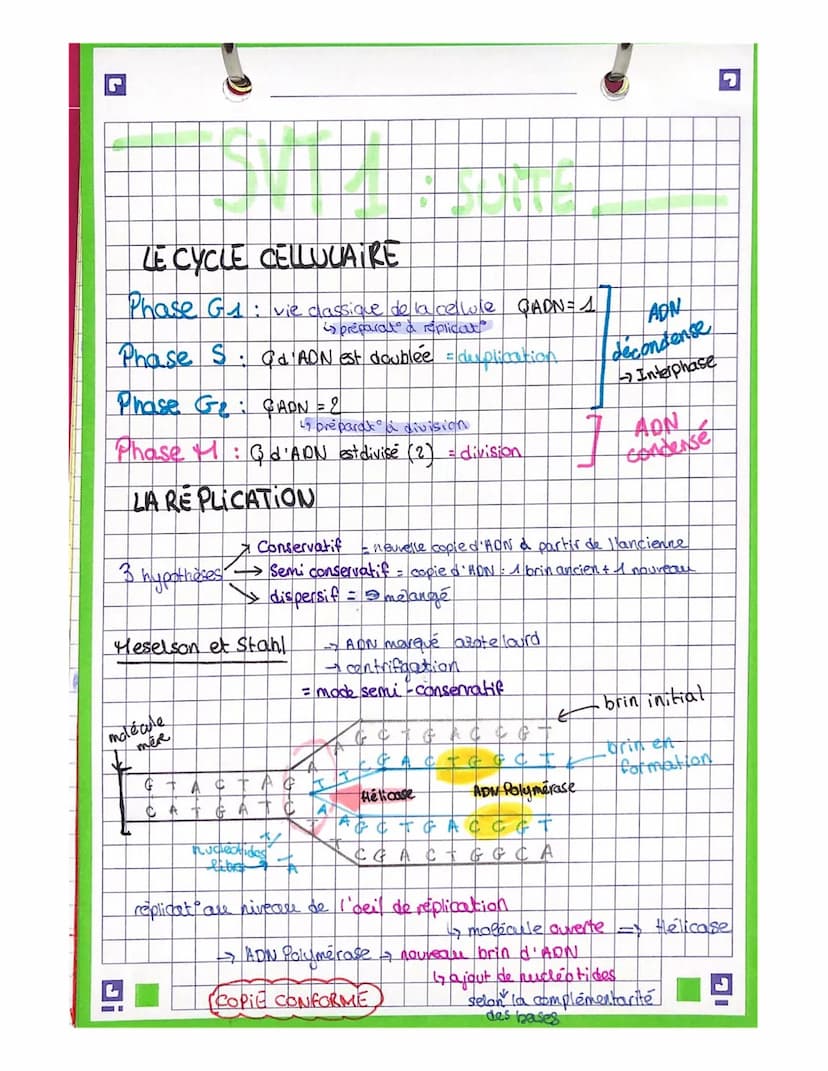 SVT 1 : SUITE
LE CYCLE CELLULAIRE
Phase G1 : vie classique de la cellule QADN = 1
↳ préparat° à réplicat°
ADN
décondensé
→ Interphase
Phase S : Q d'ADN est doublée = duplication
Phase G2 : QADN = 2
↳ préparat° à division
Phase M : Q d'ADN est divisé (2) = division
ADN
condensé
LA RÉPLICATION
3 hypothèses
↗ Conservatif = nouvelle copie d'ADN à partir de l'ancienne
→ Semi conservatif = copie d'ADN : 1 brin ancien + 1 nouveau
↘ dispersif = mélangé
Meselson et Stahl → ADN marqué azote lourd
→ centrifgation
= mode semi-conservatif
brin initial
molécule
mère
A G C T G A C C G T
brin en
formation
A
T T C G A C T G G C T
G T A C T A G
Hélicase
ADN Polymérase
C A T G A T C
A A G C T G A C C G T
T T C G A C T G G C A
nucléotides
libres
T
A
réplicat° au niveau de l'oeil de réplication
↳ molécule ouverte => Hélicase
→ ADN Polymérase → nouveau brin d'ADN
↳ ajout de nucléotides
COPIE CONFORME
selon la complémentarité
des bases